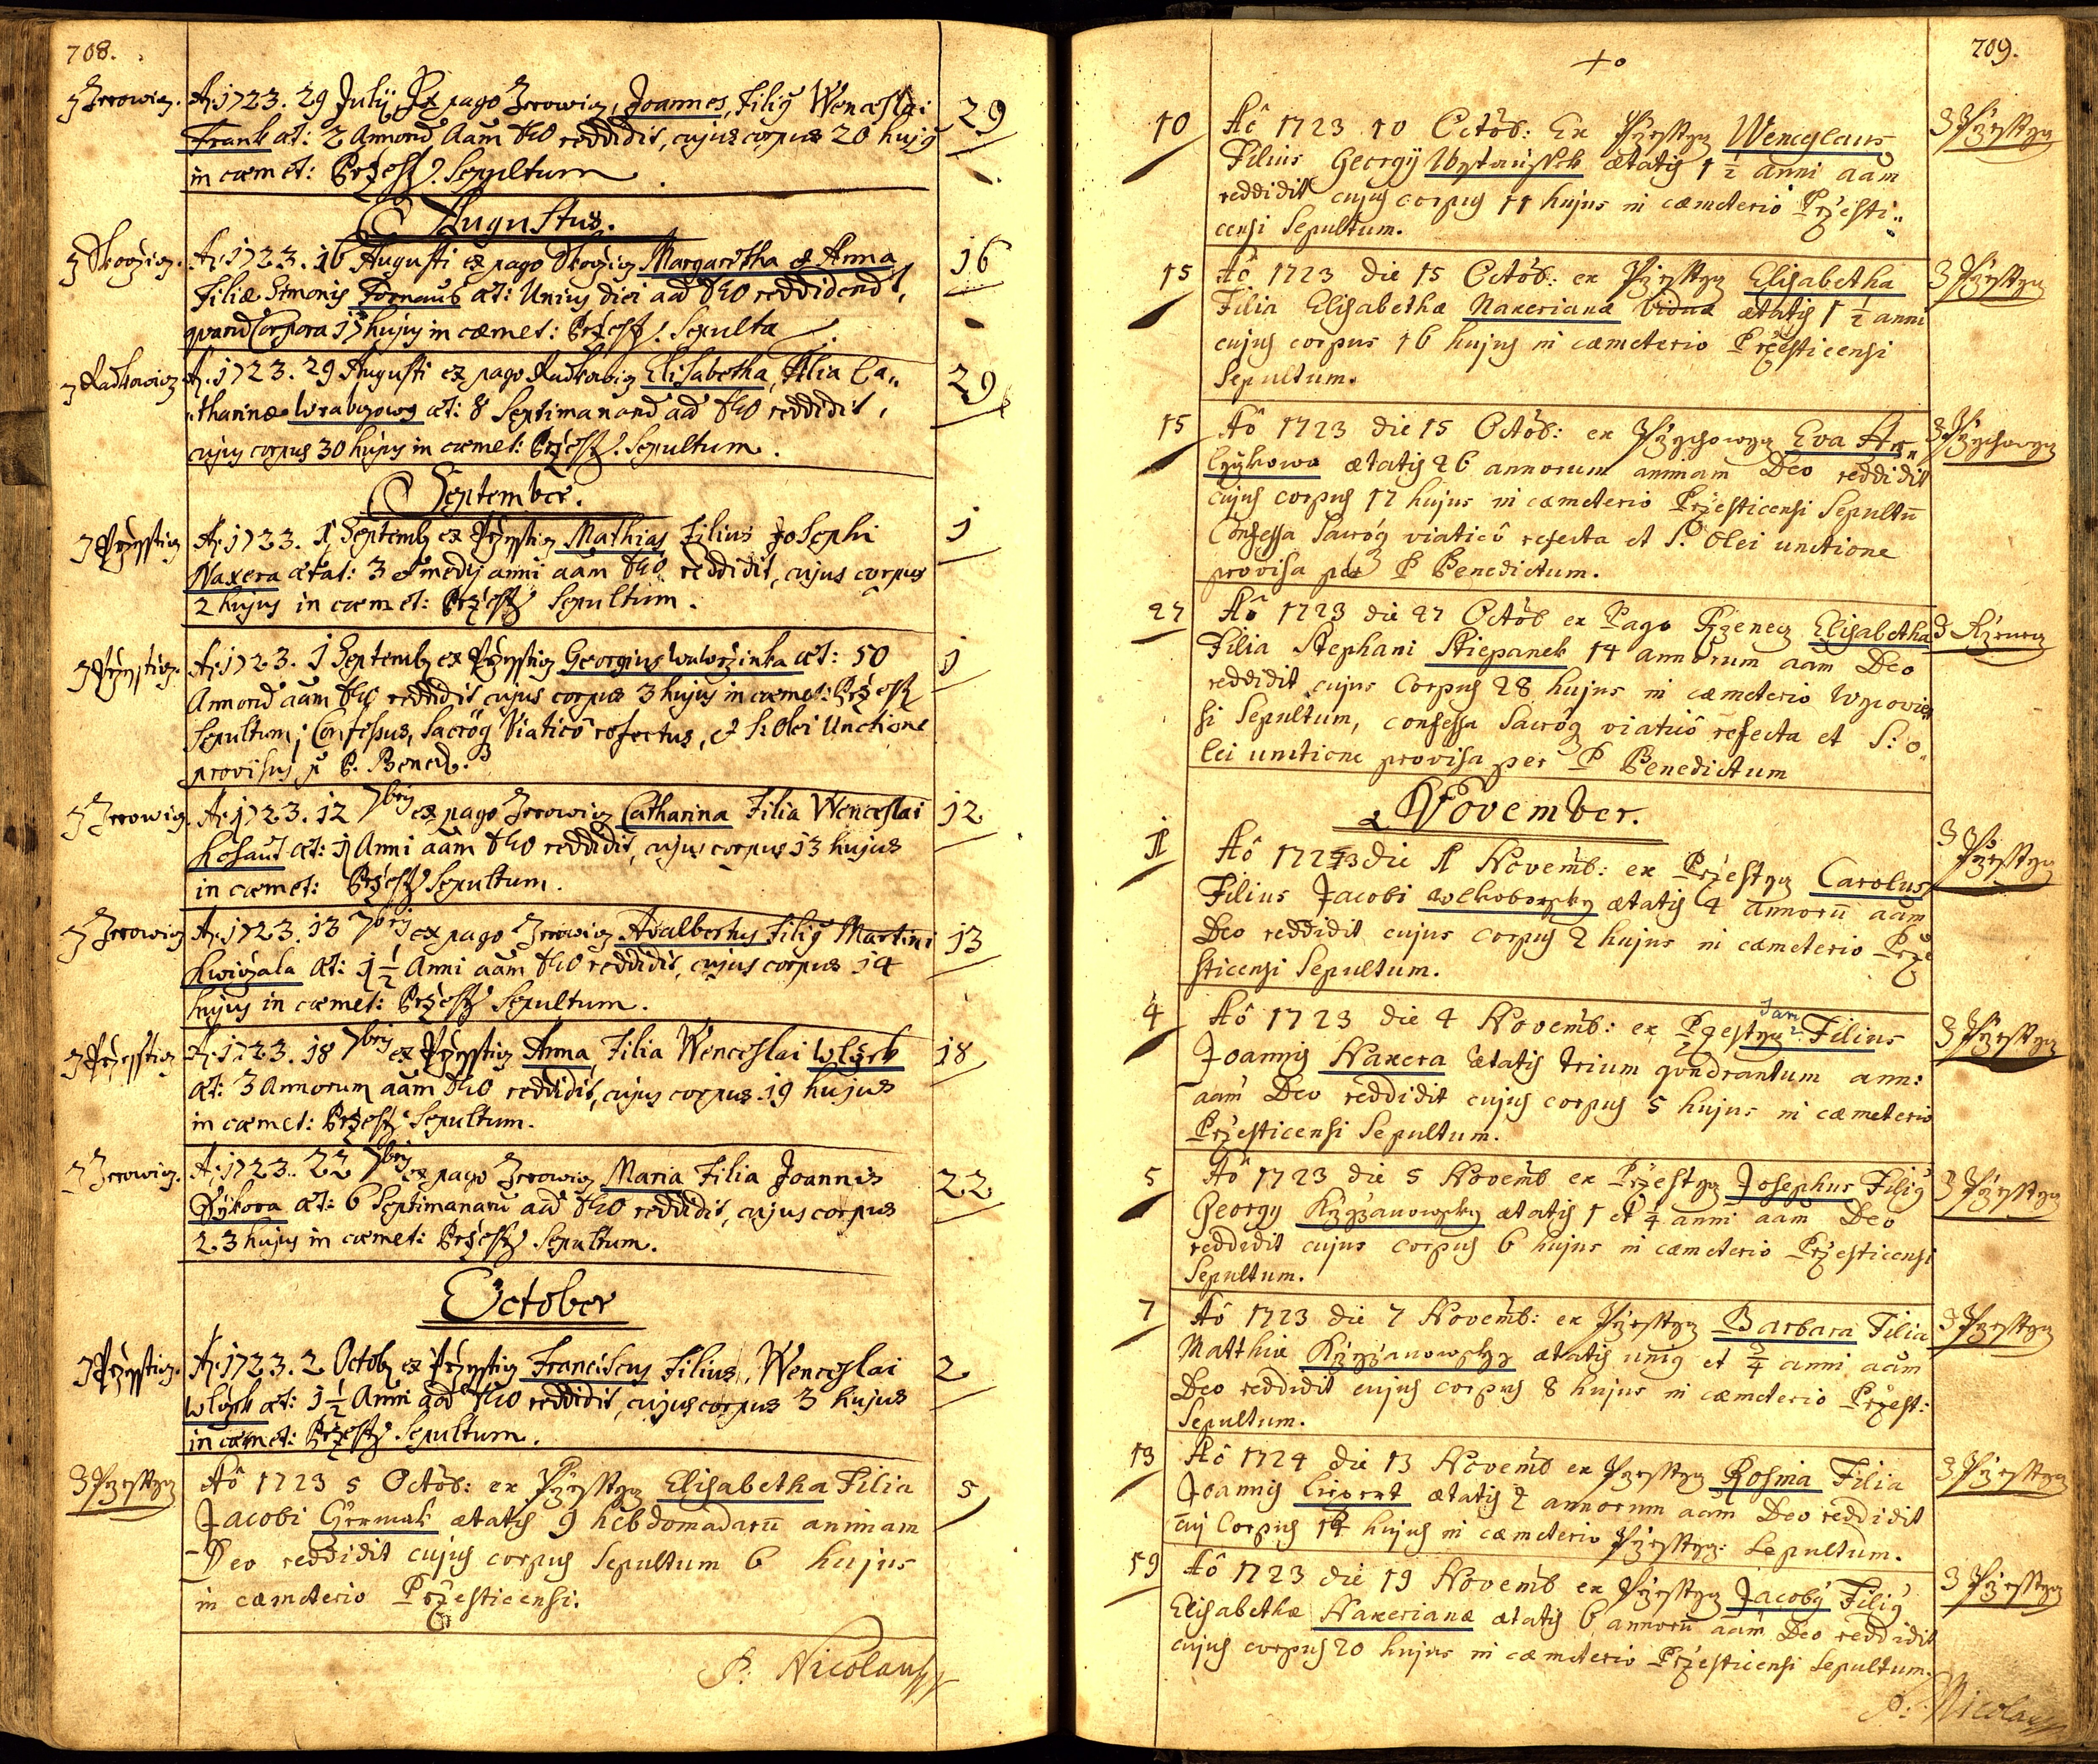 708.
z Zerowicz. A: 1723. 29 Julij Ex pago Zerowicz, Joannes, Filiꝰ Wenceslai 29
Frank æt: 2 Annorũ Aam Deo reddidit, cujus corpus 20 hujꝰ
in cæmet: Przest. Sepultum
Augustus.
z Skoczicz. A: 1723. 16 Augusti ex pago Skoczicz Margaretha et Anna 16
Filiæ Simonis æt: Unius diei aã Deo reddiderũt,
quarũ Corpora 17 hujus in cæmet: Przest. Sepulta
z Radkowicz A: 1723. 29 Augusti ex pago Radkowicz Elisabetha, Filia Ca„ 29
„tharinæ æt: 8 Septimanarũ aã Deo reddidit,
cujus corpus 30 hujus in cæmet: Przest. Sepultum.
September.
z Przessticz A: 1723. 1 Septemb ex Przessticz Mathias Filius Josephi 1
Naxera ætat: 3 et medij anni aam Deo reddidit, cujus corpus
2 hujus in cæmet: Przest Sepultum.
z Przessticz. A: 1723. 1 Septemb ex Przessticz Georgius Wawrzinka æt: 50 1
Annorũ aam Deo reddidit, cujus corpus 3 hujus in cæmet: Przest
Sepultum; Confessus, Sacroq Viaticô refectus, et S. Olei Unctione
provisus p P. Bened.
z Zerowicz. A: 1723. 12 7bris ex pago Zerowicz Catharina Filia Wenceslai 12
Kohaut æt: 1 Anni aam Deo reddidit, cujus corpus 13 hujus
in cæmet: Przest Sepultum.
z Zerowicz A: 1723. 13 7bris ex pago Zerowicz Adalbertus Filiꝰ Martini 13
Kwiczala æt: 1 1/2 Anni aam Deo reddidit, cujus corpus 14
hujus in cæmet: Przest Sepultum.
z Przessticz A: 1723. 18 7bris ex Przessticz Anna, Filia Wenceslai Wlczek 18
æt: 3 Annorum aam Deo reddidit, cujus corpus 19 hujus
in cæmet: Przest Sepultum.
z Zerowicz. A: 1723. 22 7bris ex pago Zerowicz Maria Filia Joannis 22
Sykora æt: 6 Septimanarũ aã Deo reddidit, cujus corpus
23 hujus in cæmet: Przest Sepultum.
October
z Przessticz. A: 1723. 2 Octob ex Przessticz Franciscus Filius Wenceslai 2
Wlczek æt: 1 1/2 Anni aã Deo reddidit, cujus corpus 3 hujus
in cæmet: Przest Sepultum.
z Przesstycz Aô 1723 5 Octob: ex Przesstycz Elisabetha Filia 5
Jacobi Czermak ætatis 9 hebdomadarũ animam
Deo reddidit cujus corpus Sepultum 6 hujus
in cæmeterio Przesticensi.
P: Nicolaus
709.
10 Aô 1723 10 Octob: Ex Przesstycz Wenceslaus z Przesstycz
Filius Georgij ætatis 1 1/2 anni aam
reddidit cujus corpus 11 hujus in cæmeterio Przesti„
censi Sepultum.
15 Aô 1723 die 15 Octob: ex Przesstycz Elisabetha z Przesstycz
Filia Elisabethæ Naxerianæ Viduæ ætatis 1 1/2 anni
cujus corpus 16 hujus in cæmeterio Przesticensi
Sepultum.
15 Aô 1723 die 15 Octob: ex Przychowycz Eva z Przychowycz
ætatis 26 annorum animam Deo reddidit
cujus corpus 17 hujus in cæmeterio Przesticensi Sepultũ
Confessa Sacroq viaticô refecta et S. Olei unctione
provisa per P Benedictum.
27 Aô 1723 die 27 Octob ex Pago Rzenecz Elisabetha z Rzenecz
Filia Stephani Stiepanek 14 annorum aam Deo
reddidit cujus Corpus 28 hujus in cæmeterio
si Sepultum, confessa Sacroq viaticô refecta et S: O„
lei unctione provisa per P Benedictum
November.
1 Aô 1723 die 1 Novemb: ex Przestycz Carolus z Przesstycz
Filius Jacobi ætatis 4 annorũ aam
Deo reddidit cujus corpus 2 hujus in cæmeterio Prze
sticensi Sepultum.
4 Aô 1723 die 4 Novemb: ex Przestycz Jan? Filius z Przesstycz
Joannis Naxera ætatis trium quadrantum ann:
aam Deo reddidit cujus corpus 5 hujus in cæmeterio
Przesticensi Sepultum.
5 Aô 1723 die 5 Novemb ex Przestycz Josephus Filiꝰ z Przesstycz
Georgy Krzyzanowsky ætatis 1 et 1/4 anni aam Deo
reddidit cujus corpus 6 hujus in cæmeterio Przesticensi
Sepultum.
7 Aô 1723 die 7 Novemb: ex Przesstycz Barbara Filia z Przesstycz
Matthiæ Krzyzanowsky ætatis uniꝰ et 3/4 anni aam
Deo reddidit cujus corpus 8 hujus in cæmeterio Przest:
Sepultum.
13 Aô 1724 die 13 Novemb ex Przesstycz Rosina Filia z Przesstycz
Joannis ætatis 2 annorum aam Deo reddidit
cuj Corpus 14 hujus in cæmeterio Przesstycz: Sepultum.
19 Aô 1723 die 19 Novemb ex Przesstycz Jacobꝰ Filiꝰ z Przesstycz
Elisabethæ Naxerianæ ætatis 6 annorũ aam Deo reddidit
cujus corpus 20 hujus in cæmeterio Przesticensi Sepultum.
P: Nicolaus